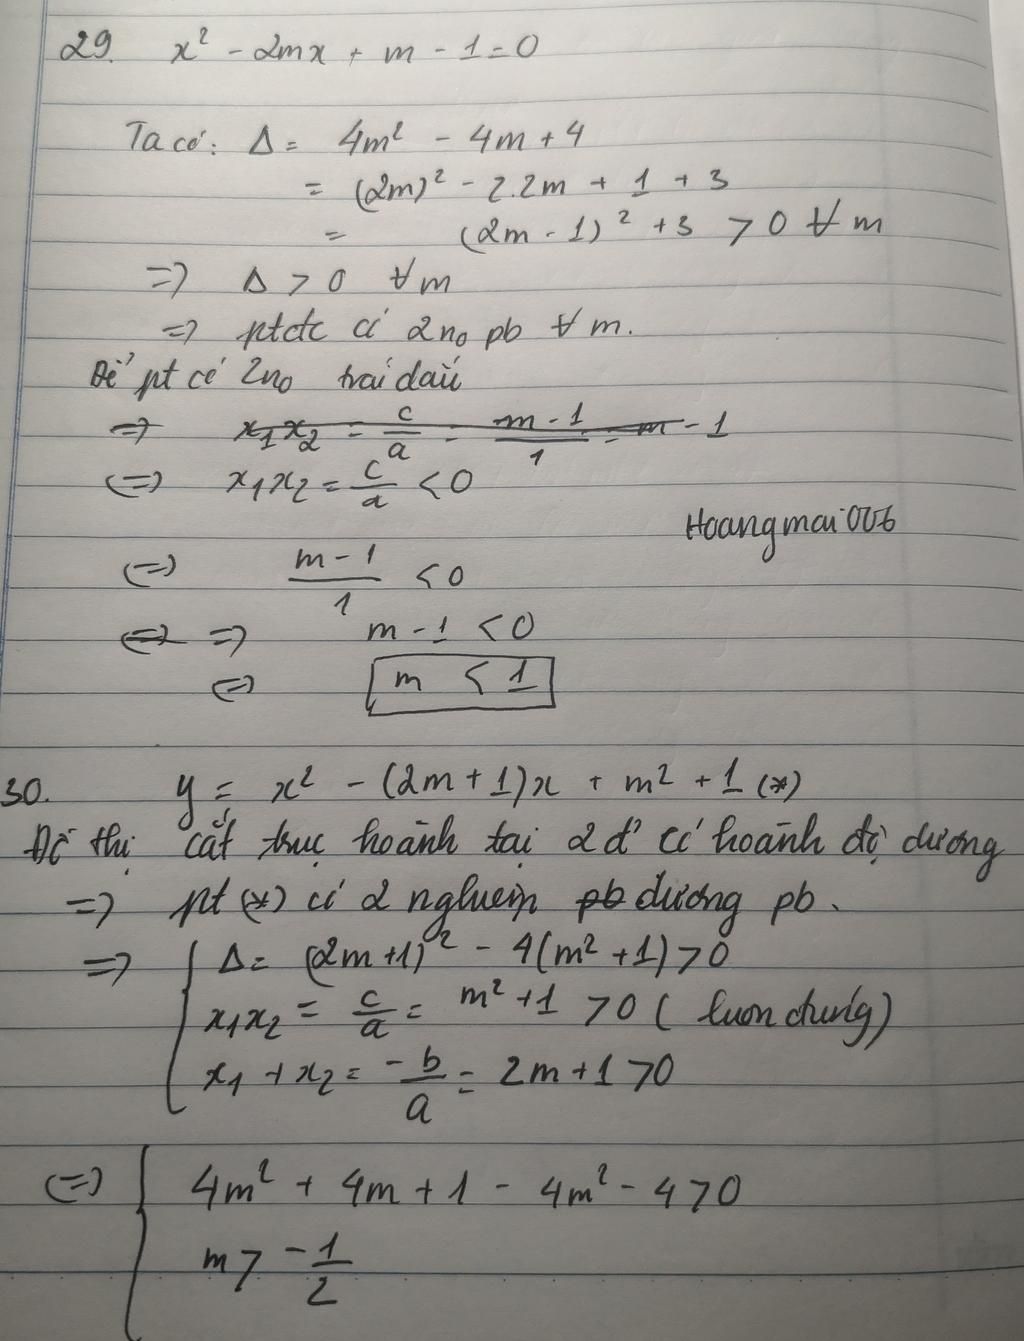 29. x² - 2mx + m - 1 = 0
Ta có: Δ = 4m² - 4m + 4
= (2m)² - 2.2m + 1 + 3
= (2m - 1)² + 3 > 0 ∀ m
=> Δ > 0 ∀ m
=> ptđc có 2 no pb ∀ m.
Để pt có 2no trái dấu
=> x₁x₂ = c/a = m - 1/1 = m - 1
<=> x₁x₂ = c/a < 0
Hoangmai006
<=> m - 1/1 < 0
<=> => m - 1 < 0
<=> m < 1
30. y = x² - (2m + 1)x + m² + 1 (*)
Đồ thị cắt trục hoành tại 2 đ' có hoành độ dương
=> pt (*) có 2 nghiệm pb dương pb.
=> { Δ = (2m + 1)² - 4(m² + 1) > 0
x₁x₂ = c/a = m² + 1 > 0 (luôn đúng)
x₁ + x₂ = -b/a = 2m + 1 > 0
<=> { 4m² + 4m + 1 - 4m² - 4 > 0
m > -1/2